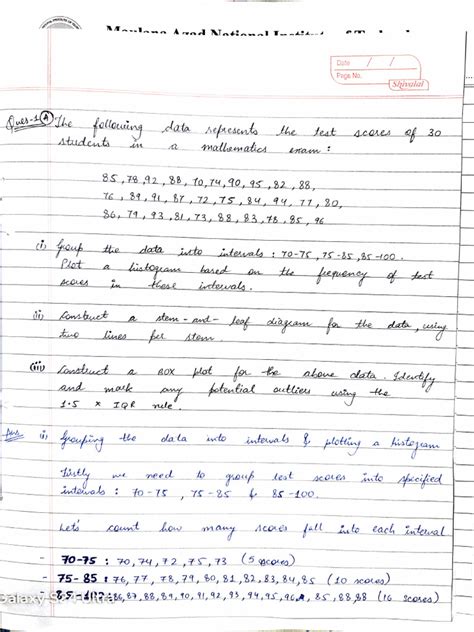 Maulana Azad National
Date
Page No.
Shivalal
Ques-1 (A) The following data represents the test scores of 30
students in a mathematics exam :
85, 78, 92, 88, 70, 74, 90, 95, 82, 88,
76, 89, 91, 87, 72, 75, 84, 94, 77, 80,
86, 79, 93, 81, 73, 88, 83, 78, 85, 96
(i) Group the data into intervals : 70-75, 75-85, 85-100.
Plot a histogram based on the frequency of test
scores in these intervals.
(ii) Construct a stem-and-leaf diagram for the data, using
two lines per stem
(iii) Construct a BOX plot for the above data. Identify
and mark any potential outliers using the
1.5 × IQR rule.
Ans (i) Grouping the data into intervals & plotting a histogram
Firstly we need to group test scores into specified
intervals : 70-75, 75-85 & 85-100.
Let's count how many scores fall into each interval
- 70-75 : 70, 74, 72, 75, 73 (5 scores)
- 75-85 : 76, 77, 78, 79, 80, 81, 82, 83, 84, 85 (10 scores)
86, 87, 88, 89, 90, 91, 92, 93, 94, 95, 96, 85, 88, 88 (16 scores)